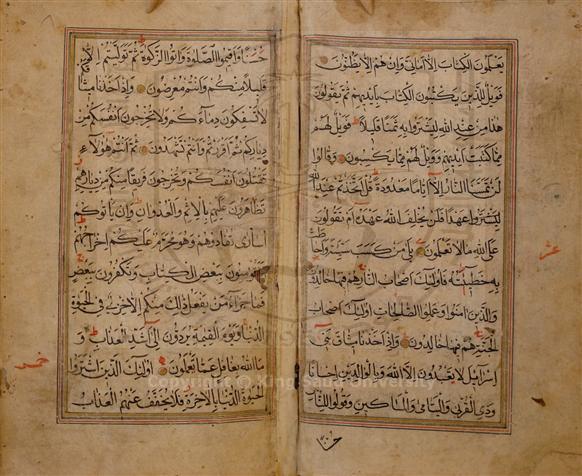 يعلمون الكتاب الا اماني وان هم الا يظنون
فويل للذين يكتبون الكتاب بايديهم ثم يقولون
هذا من عند الله ليشتروا به ثمنا قليلا فويل لهم
مما كتبت ايديهم وويل لهم مما يكسبون وقالوا
لن تمسنا النار الا اياما معدودة قل اتخذتم عند الله
عهدا فلن يخلف الله عهده ام تقولون
على الله ما لا تعلمون بلى من كسب سيئة واحاطت
به خطيئته فاولئك اصحاب النار هم فيها خالدون
والذين امنوا وعملوا الصالحات اولئك اصحاب
الجنة هم فيها خالدون واذ اخذنا ميثاق بني
اسرائل لا تعبدون الا الله وبالوالدين احسانا
وذي القربى واليتامى والمساكين وقولوا للناس
حسنا واقيموا الصلوة واتوا الزكوة ثم توليتم الا
قليلا منكم وانتم معرضون واذ اخذنا ميثاقكم
لا تسفكون دماءكم ولا تخرجون انفسكم من
دياركم ثم اقررتم وانتم تشهدون ثم انتم هؤلاء
تقتلون انفسكم وتخرجون فريقا منكم من ديارهم
تظاهرون عليهم بالاثم والعدوان وان ياتوكم
اسارى تفادوهم وهو محرم عليكم اخراجهم
افتؤمنون ببعض الكتاب وتكفرون ببعض
فما جزاء من يفعل ذلك منكم الا خزي في الحيوة
الدنيا ويوم القيمة يردون الى اشد العذاب و
ما الله بغافل عما تعملون اولئك الذين اشتروا
الحيوة الدنيا بالاخرة فلا يخفف عنهم العذاب
Copyright © King Saud University